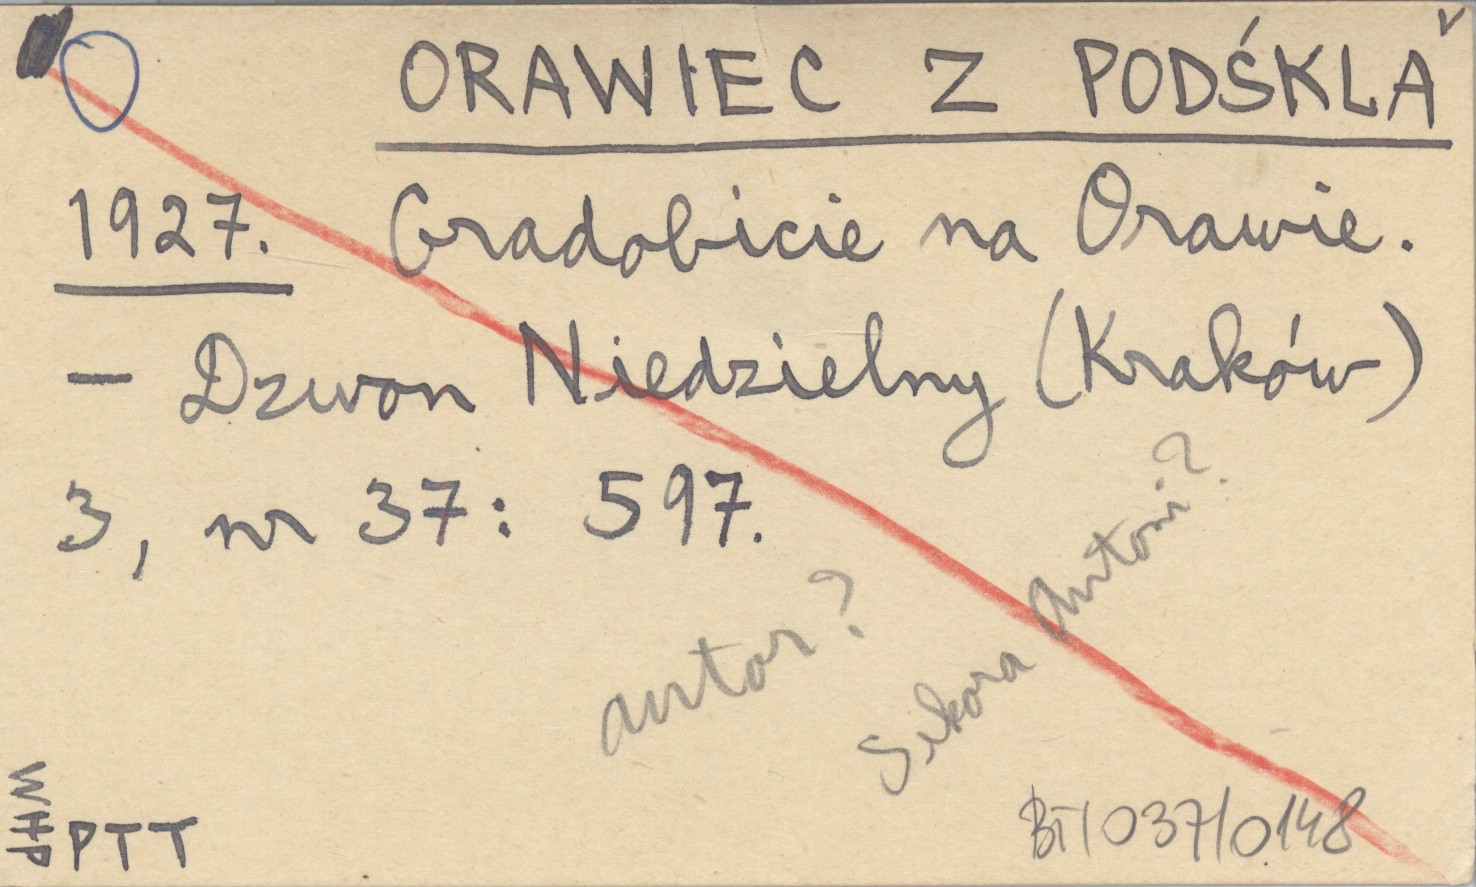 ORAWIEC Z PODŚKLA
1927. Gradobicie na Orawie.
— Dzwon Niedzielny (Kraków)
3, nr 37: 597.
autor?
Sikora Antoni?
WHP
PTT
BT/037/0148